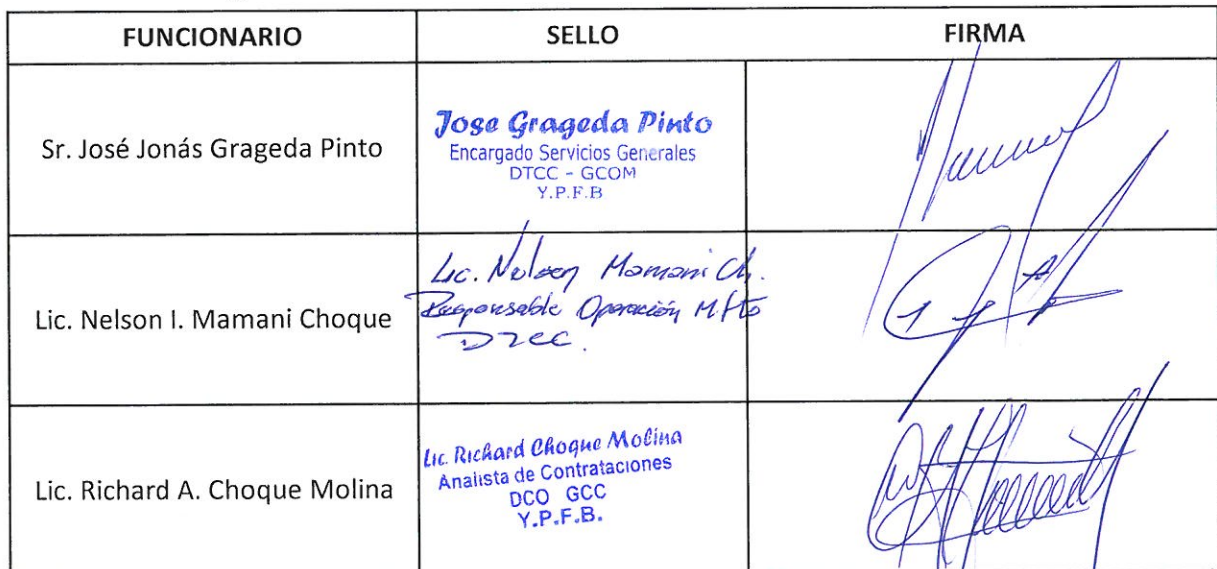 FUNCIONARIO SELLO FIRMA
Sr. José Jonás Grageda Pinto
Jose Grageda Pinto
Encargado Servicios Generales
DTCC - GCOM
Y.P.F.B
Lic. Nelson I. Mamani Choque
Lic. Nelson Mamani Ch.
Responsable Operación M.fto
Lic. Richard A. Choque Molina
Lic. Richard Choque Molina
Analista de Contrataciones
DCO GCC
Y.P.F.B.